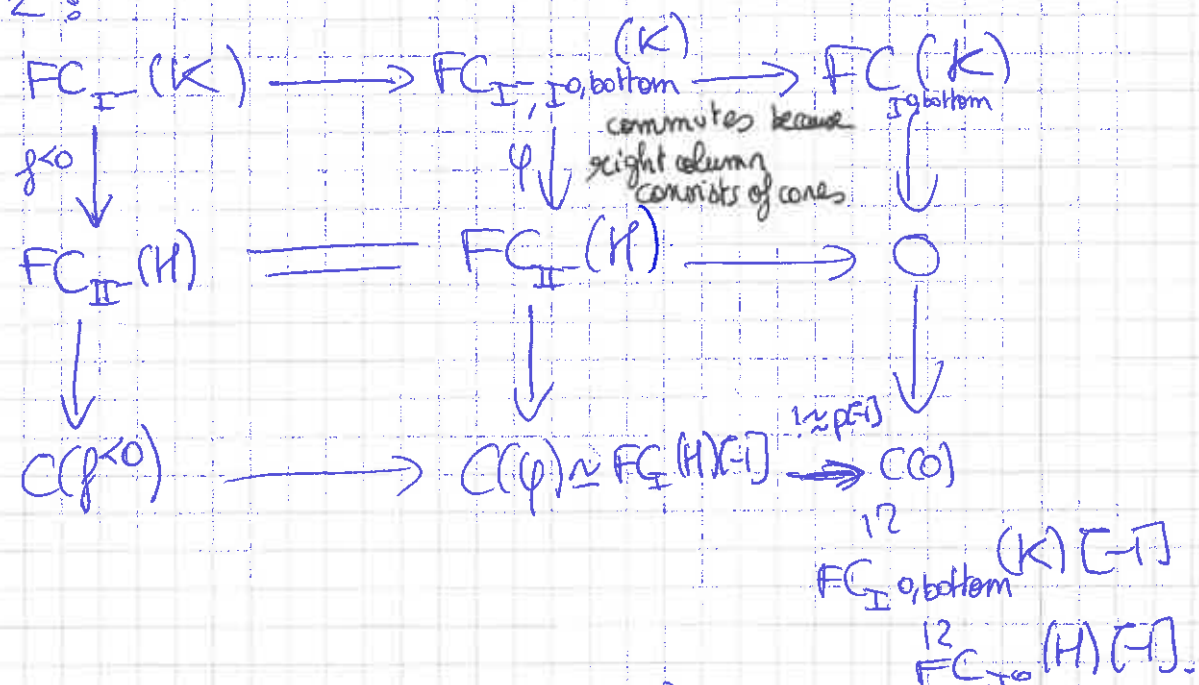 2:
FC_I-(K) → FC_{I-, I^{0,bottom}}(K) → FC_{I^{0,bottom}}(K)
commutes because
f^{<0} ↓ φ ↓ right column ↓
consists of cones
FC_{II-}(H) = FC_{II-}(H) → 0
↓ ↓ ↓
C(f^{<0}) → C(φ) ≃ FC_I(H)[-1] → C(0)
≃ p[-1]
≃
FC_{I^{0,bottom}}(K)[-1]
≃
(H)[-1].